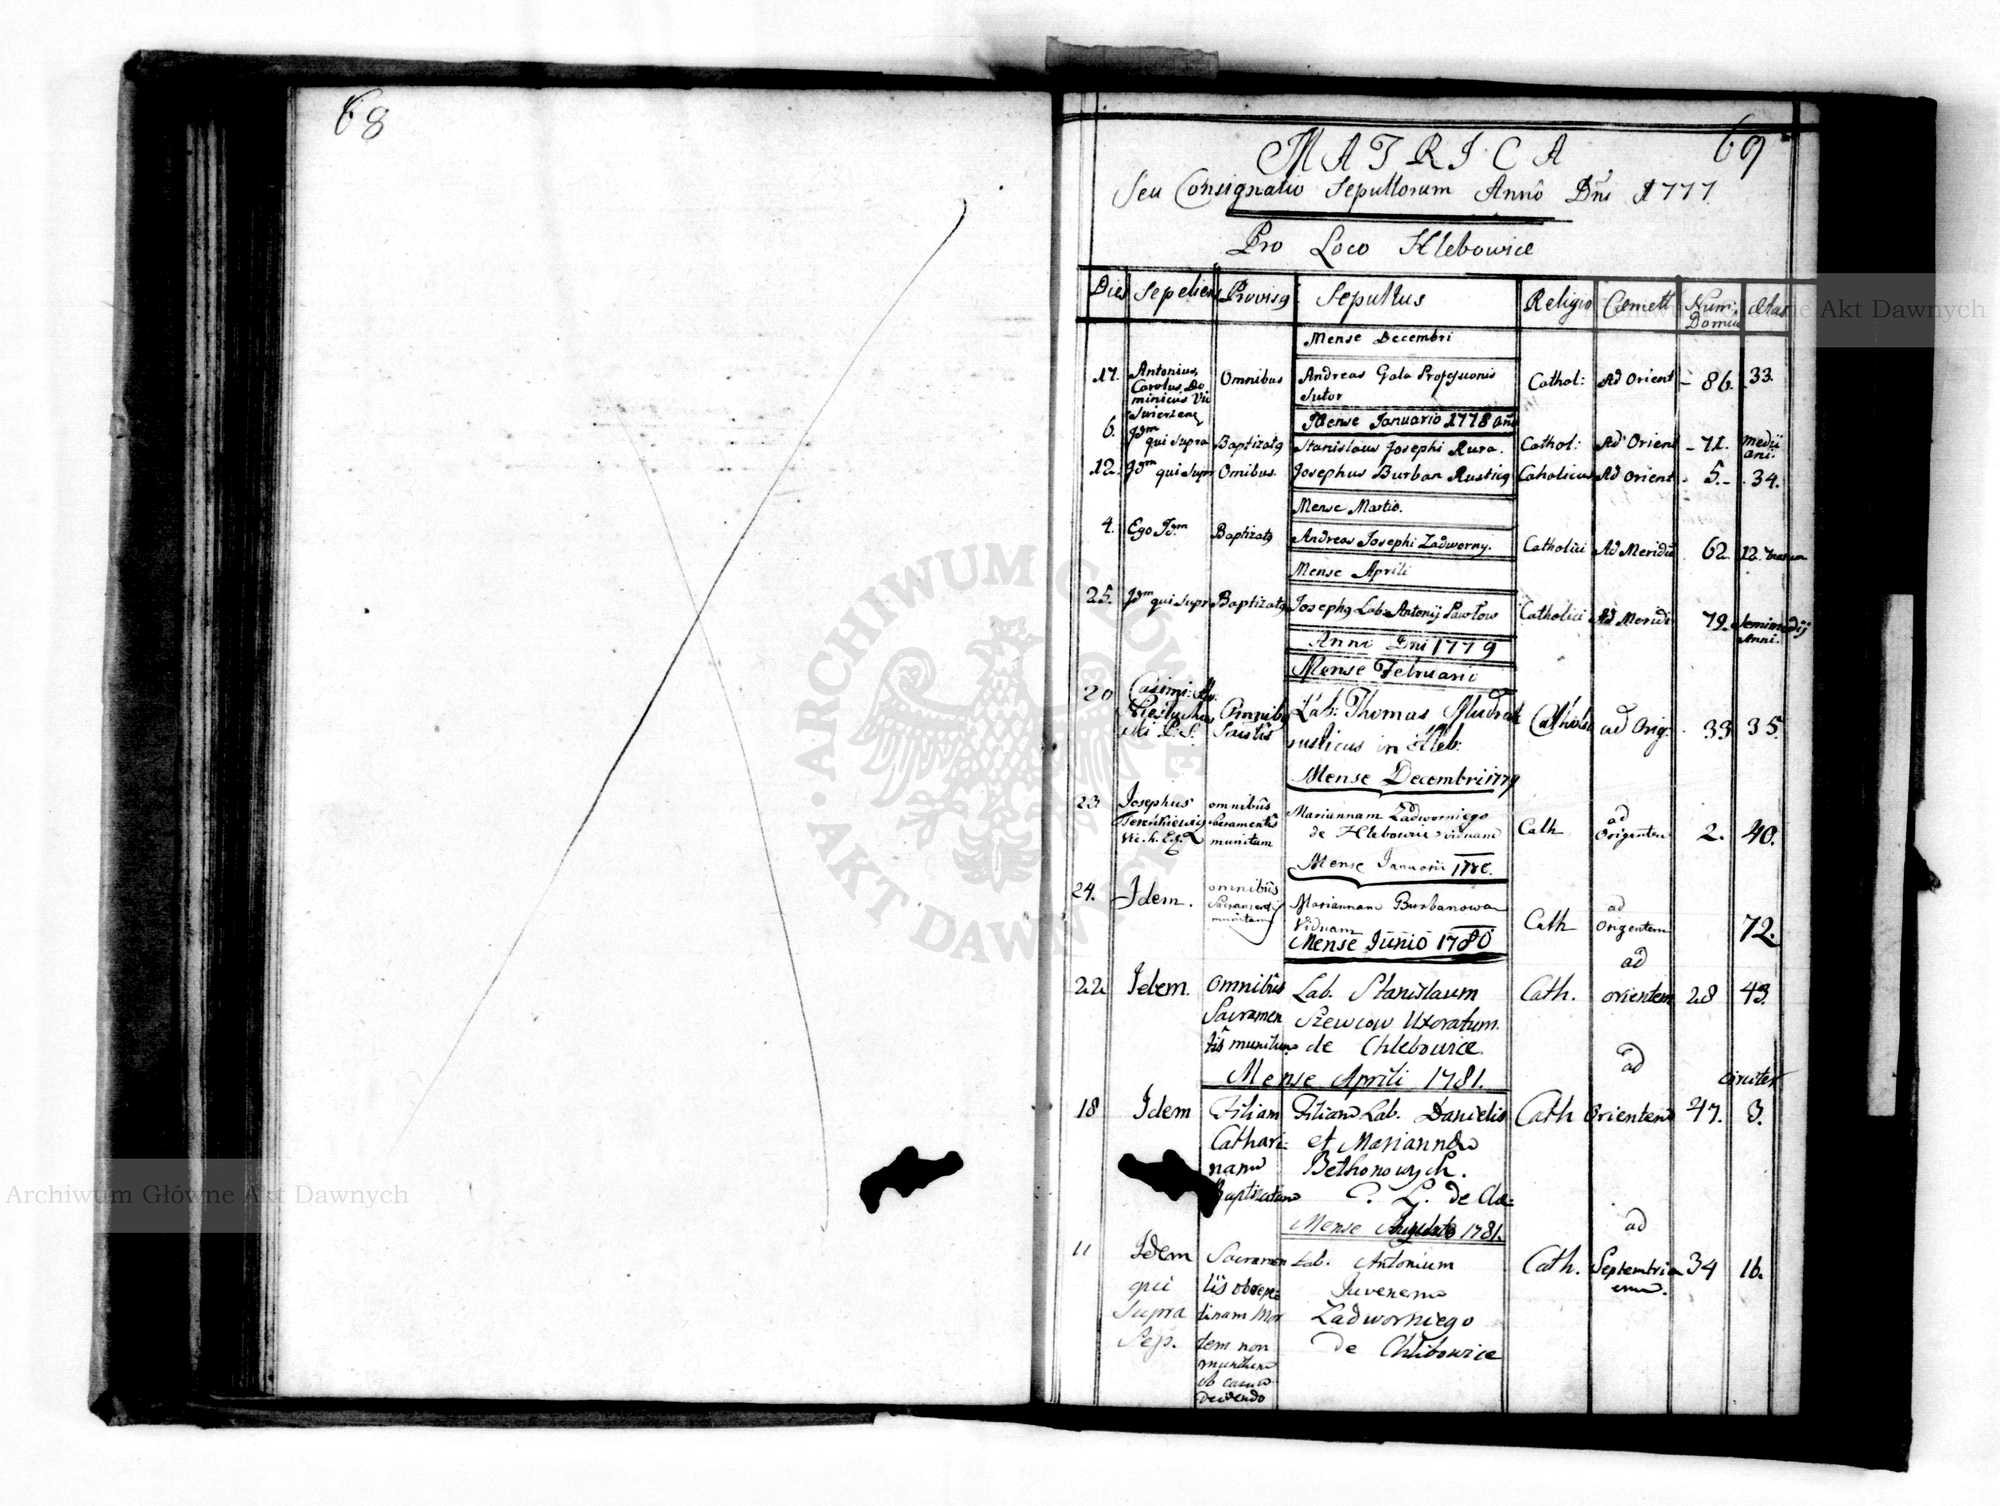 68
69
MATRICA
Seu Consignatio Sepultorum Anno Dni 1777
Pro Loco Hlebowice
Dies Sepeliens Provisq Sepultus Religio Cemett Num: Domus Ætas
Mense Decembri
17. Antonius, Carolus, Do minicus Omnibus Andreas Gala Professionis Sutor Cathol: Ad Orient 86. 33.
Mense Januario 1778
6. Idm qui supra Baptizatq Stanislaus Josephi Kura. Cathol: Ad Orien 71. medii ani.
12. Idm qui supr Omibus. Josephus Burban Rusticq Catholicus Ad Orient 5. 34.
Mense Martio.
4. Ego Idm Baptizatq Andreas Josephi Zadworny. Catholici Ad Meridie 62 12.
Mense Aprili
25. Idm qui supr Baptizatq Josephq Lab: Antonij Pawlow Catholici Ad Meridi 79. Anni.
Anni Dni 1779
Mense Februario
20 Casimi: Omnibq Lab: Thomas rusticus in Hleb: Catholic ad Orig. 33 35.
Mense Decembri 1779
23 Josephus omnibus sacramentis munitam Mariannam Zadworniego de Hlebowic viduam Cath ad Origentem 2. 40.
Mense Januarii 1780.
24. Idem. omnibus Sacramentis munitam Mariannam Burbanowa Viduam Cath ad Origentem 72.
Mense Junio 1780
22 Idem. Omnibus Sacramen tis munitum Lab. Stanislaum Szewcow Uxoratum. de Chlebowice. Cath. ad orientem 28 43.
Mense Aprili 1781.
18 Idem Filiam Cathari: nam Baptizatam Filiam Lab. Danielis et Mariannæ Bethonowych. Cath ad Orientem 47. circiter 3.
Mense Augusto 1781.
11 Idem qui Supra Sep. Sacramen tis ob repen tinam Mor tem non munitum Lab. Antonium Juvenem Zadworniego de Chlibowice Cath. ad Septembri 34 16.
Archiwum Główne Akt Dawnych
ARCHIWUM GŁÓWNE AKT DAWNYCH
Archiwum Główne Akt Dawnych